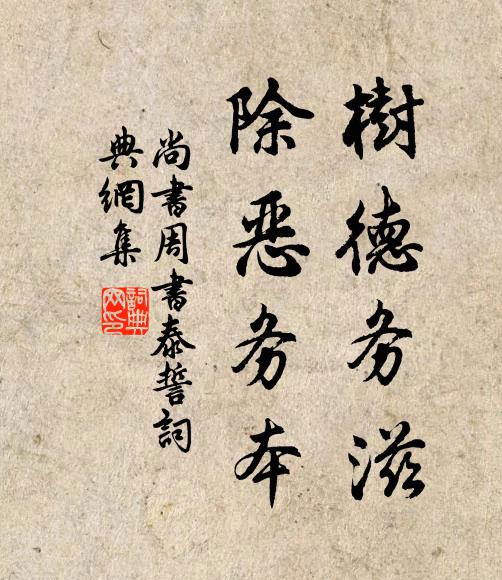 樹德务滋
除恶务本
尚書周書泰誓詞
典網集
詞典
网印